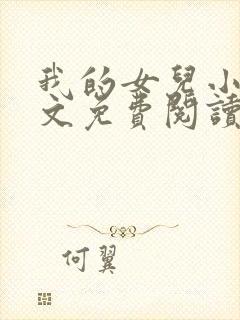 我的女兒小
文免費閱讀
何翼